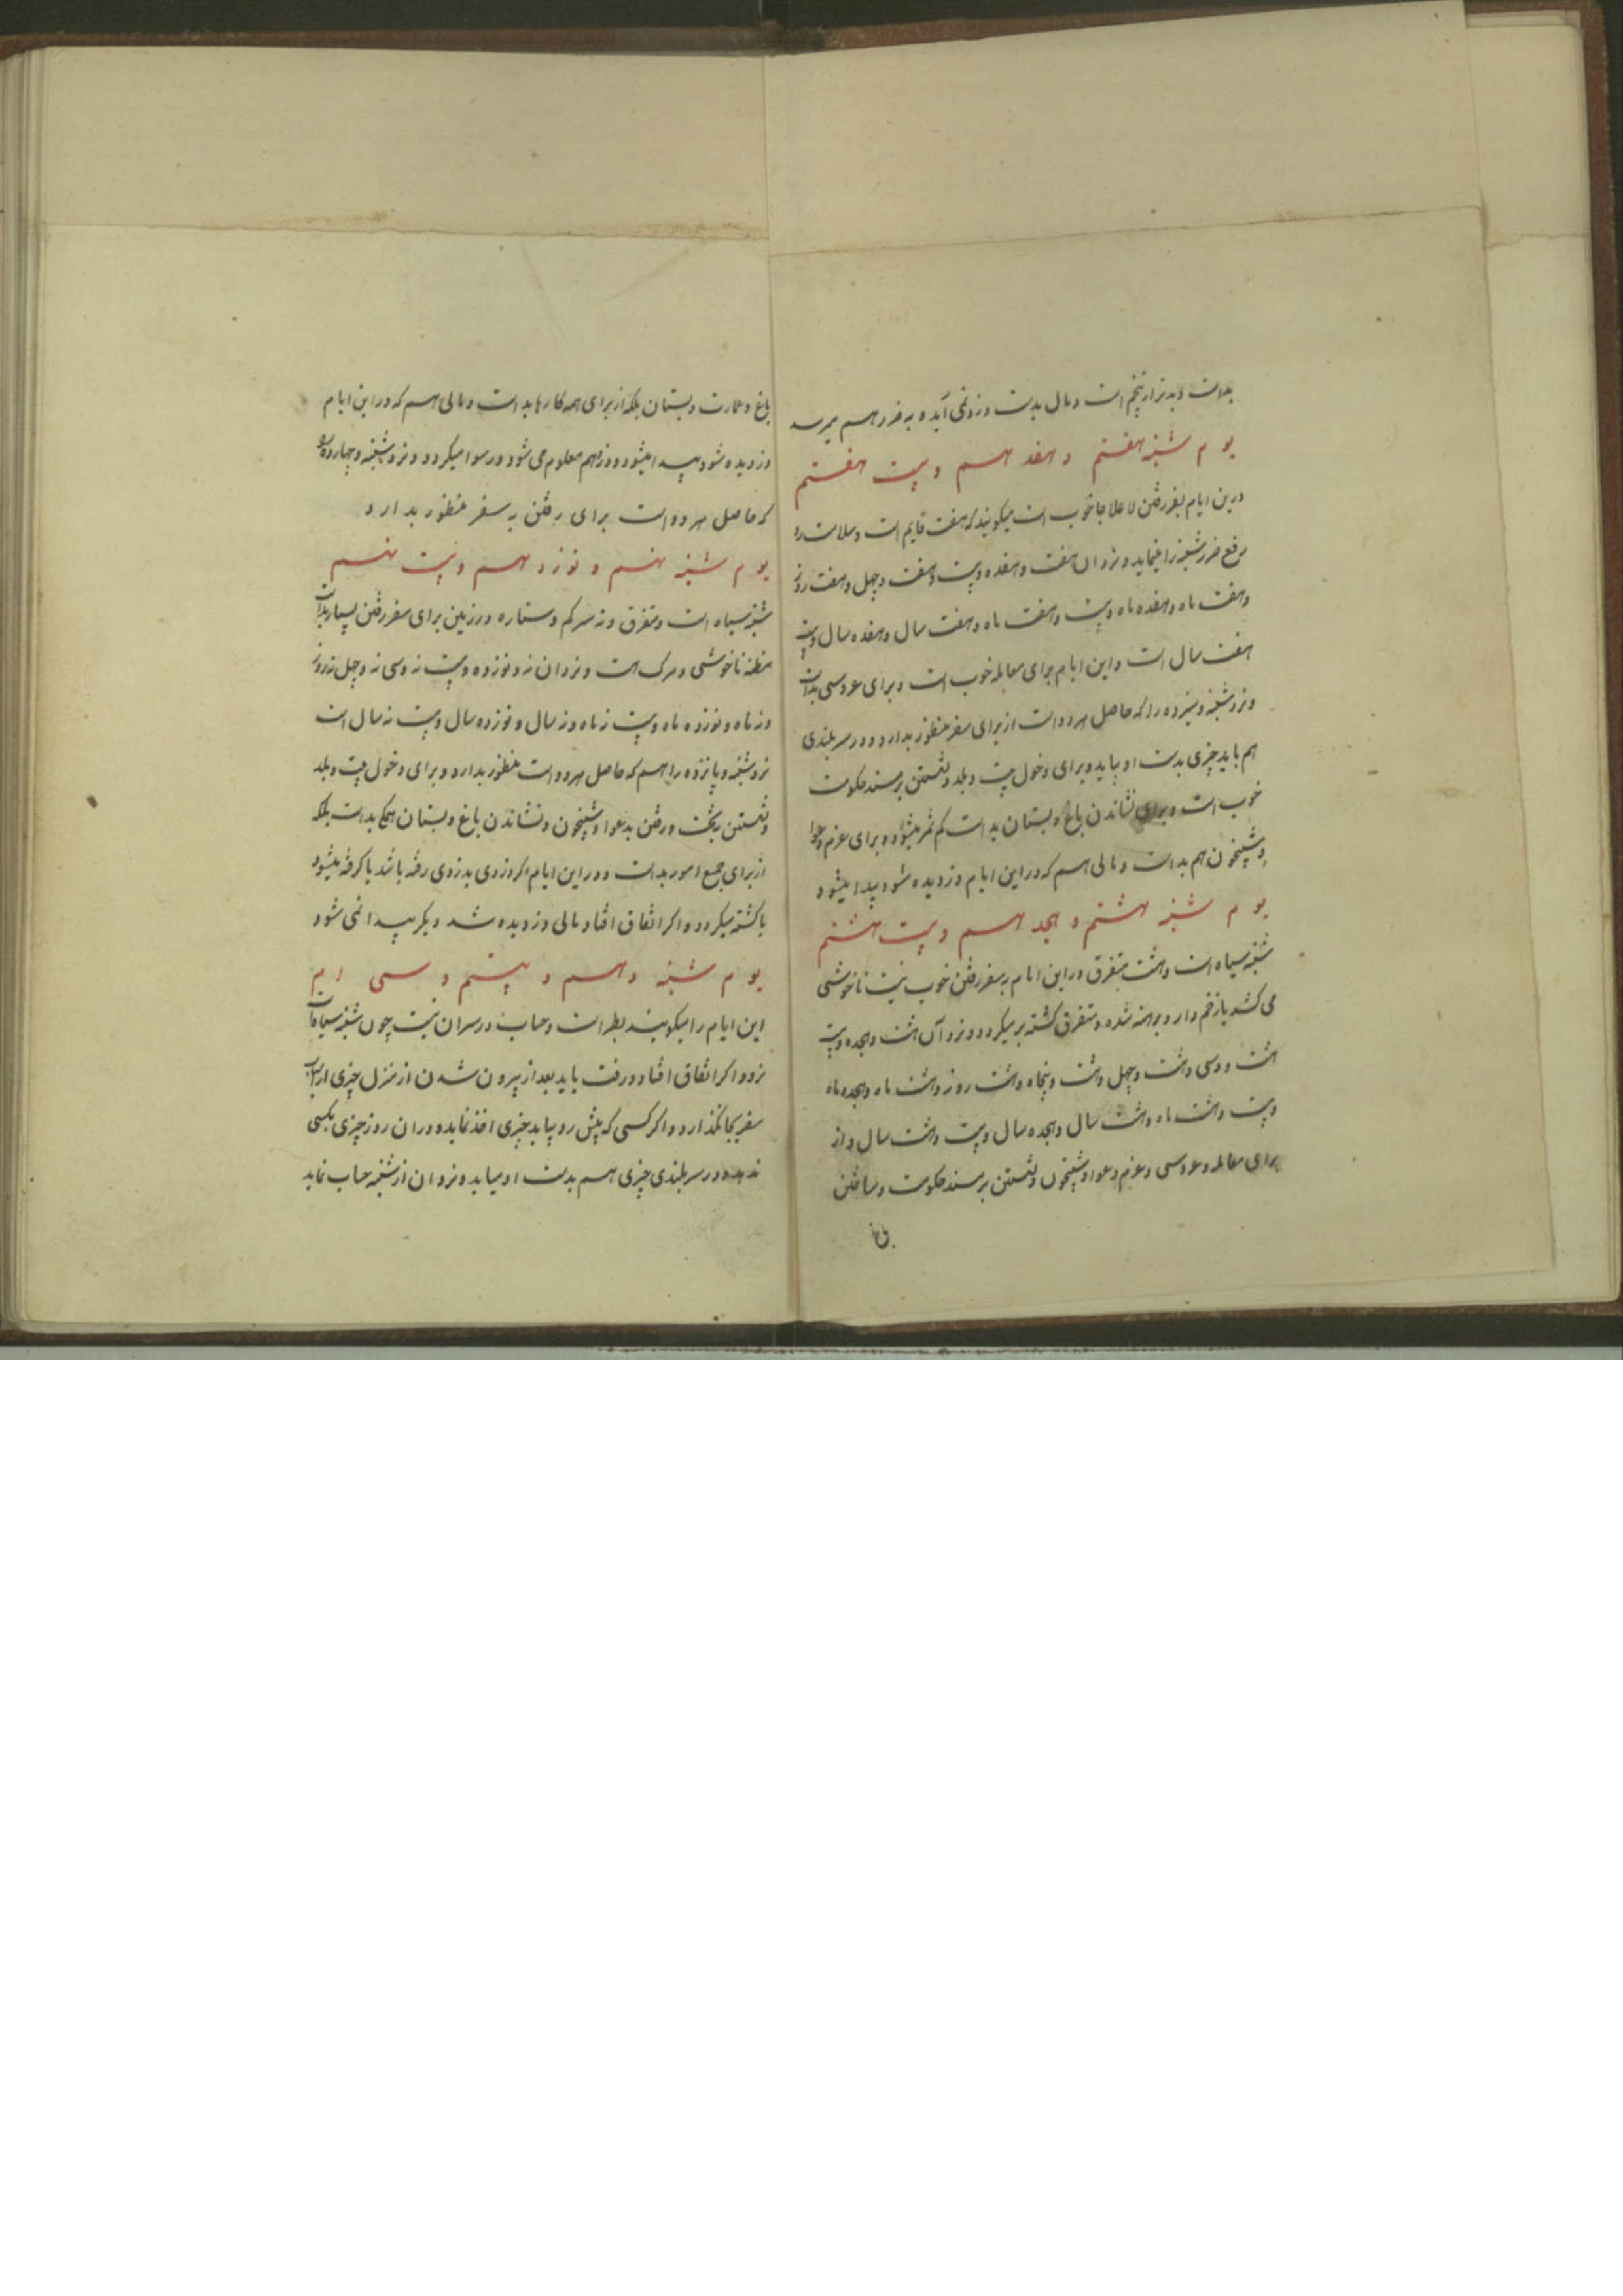 بداست و بدتر از پنجم است و مال بدست دزد نمی آید و به ضرر هم میرسد
یوم شنبه هفتم و هفدهم و بیست هفتم
درین ایام بفر رفتن لاعلاجا خوب است میکویند که هفت قایم است و سلامت
رفع ضرر شنبه را مینماید و نزد ان هفت و هفده و بیست و هفت و چهل و هفت روز
و هفت ماه و هفده ماه و بیست و هفت ماه و هفت سال و هفده سال و بیست
هفت سال است و این ایام برای معامله خوب است و برای عروسی بداست
و نزد شنبه و سیزده را که حاصل هر دو است از برای سفر منظور بدارد و در سر بلندی
هم باید چیزی بدست او بیاید و برای دخول بیت و بلد و نشستن بر مسند حکومت
خوب است و برای نشاندن باغ و بستان بد است کم ثمر میشود و برای عزم دعوا
و شبیخون هم بد است و مالی هم که در این ایام دزدیده شود پیدا میشود
یوم شنبه هشتم و هجدهم و بیست هشتم
شنبه سیاه است و هشت متفرق در این ایام به سفر رفتن خوب نیست ناخوشی
می کشد یا زخم دار و برهنه شده و متفرق کشته بر میکردد و نزد آن هشت و هجده و بیست
هشت و سی و هشت و چهل و هشت و پنجاه و هشت روز و هشت ماه و هجده ماه
و بیست و هشت ماه و هشت سال و هجده سال و بیست و هشت سال و از
برای معامله و عروسی و عزم دعوا و شبیخون و نشستن بر مسند حکومت و ساختن
باغ
باغ و عمارت و بستان بلکه از برای همه کارها بد است و مالی هم که در این ایام
دزدیده شود پیدا میشود و دزد هم معلوم می شود و رسوا میکردد و نزد شنبه و چهارده
که حاصل هر دو است برای رفتن به سفر منظور بدارد
یوم شنبه نهم و نوزدهم و بیست نهم
شنبه سیاه است و متفرق و نه سرکم و ستاره در زمین برای سفر رفتن بسیار بد است
مظنه ناخوشی و مرک است و نزد ان نه و نوزده و بیست نه و سی نه و چهل نه روز
و نه ماه و نوزده ماه و بیست نه ماه و نه سال و نوزده سال و بیست نه سال است
نزد شنبه و پانزده را هم که حاصل هر دو است منظور بدارد و برای دخول بیت و بلد
و نشستن بتخت و رفتن بدعوا و شبیخون و نشاندن باغ و بستان همکی بد است بلکه
از برای جمیع امور بد است و در این ایام اکر دزدی بدزدی رفته باشد یا کرفته میشود
یا کشته میکردد و اکر اتفاق افتاد مالی دزدیده شد دیکر پیدا نمی شود
یوم شنبه دهم و بیستم و سی ام
این ایام را میکویند بطر است و حساب در سر ان نیست چون شنبه سیاه است
نرود اکر اتفاق افتاد و رفت باید بعد از بیرون شدن از منزل چیزی از اسباب
سفر بجا نکذارد و اکر کسی که پیش رو بیاید چیزی اخذ نماید و در ان روز چیزی بکسی
ندهد و در سر بلندی چیزی هم بدست او میاید و نزد ان از شنبه حساب نماید